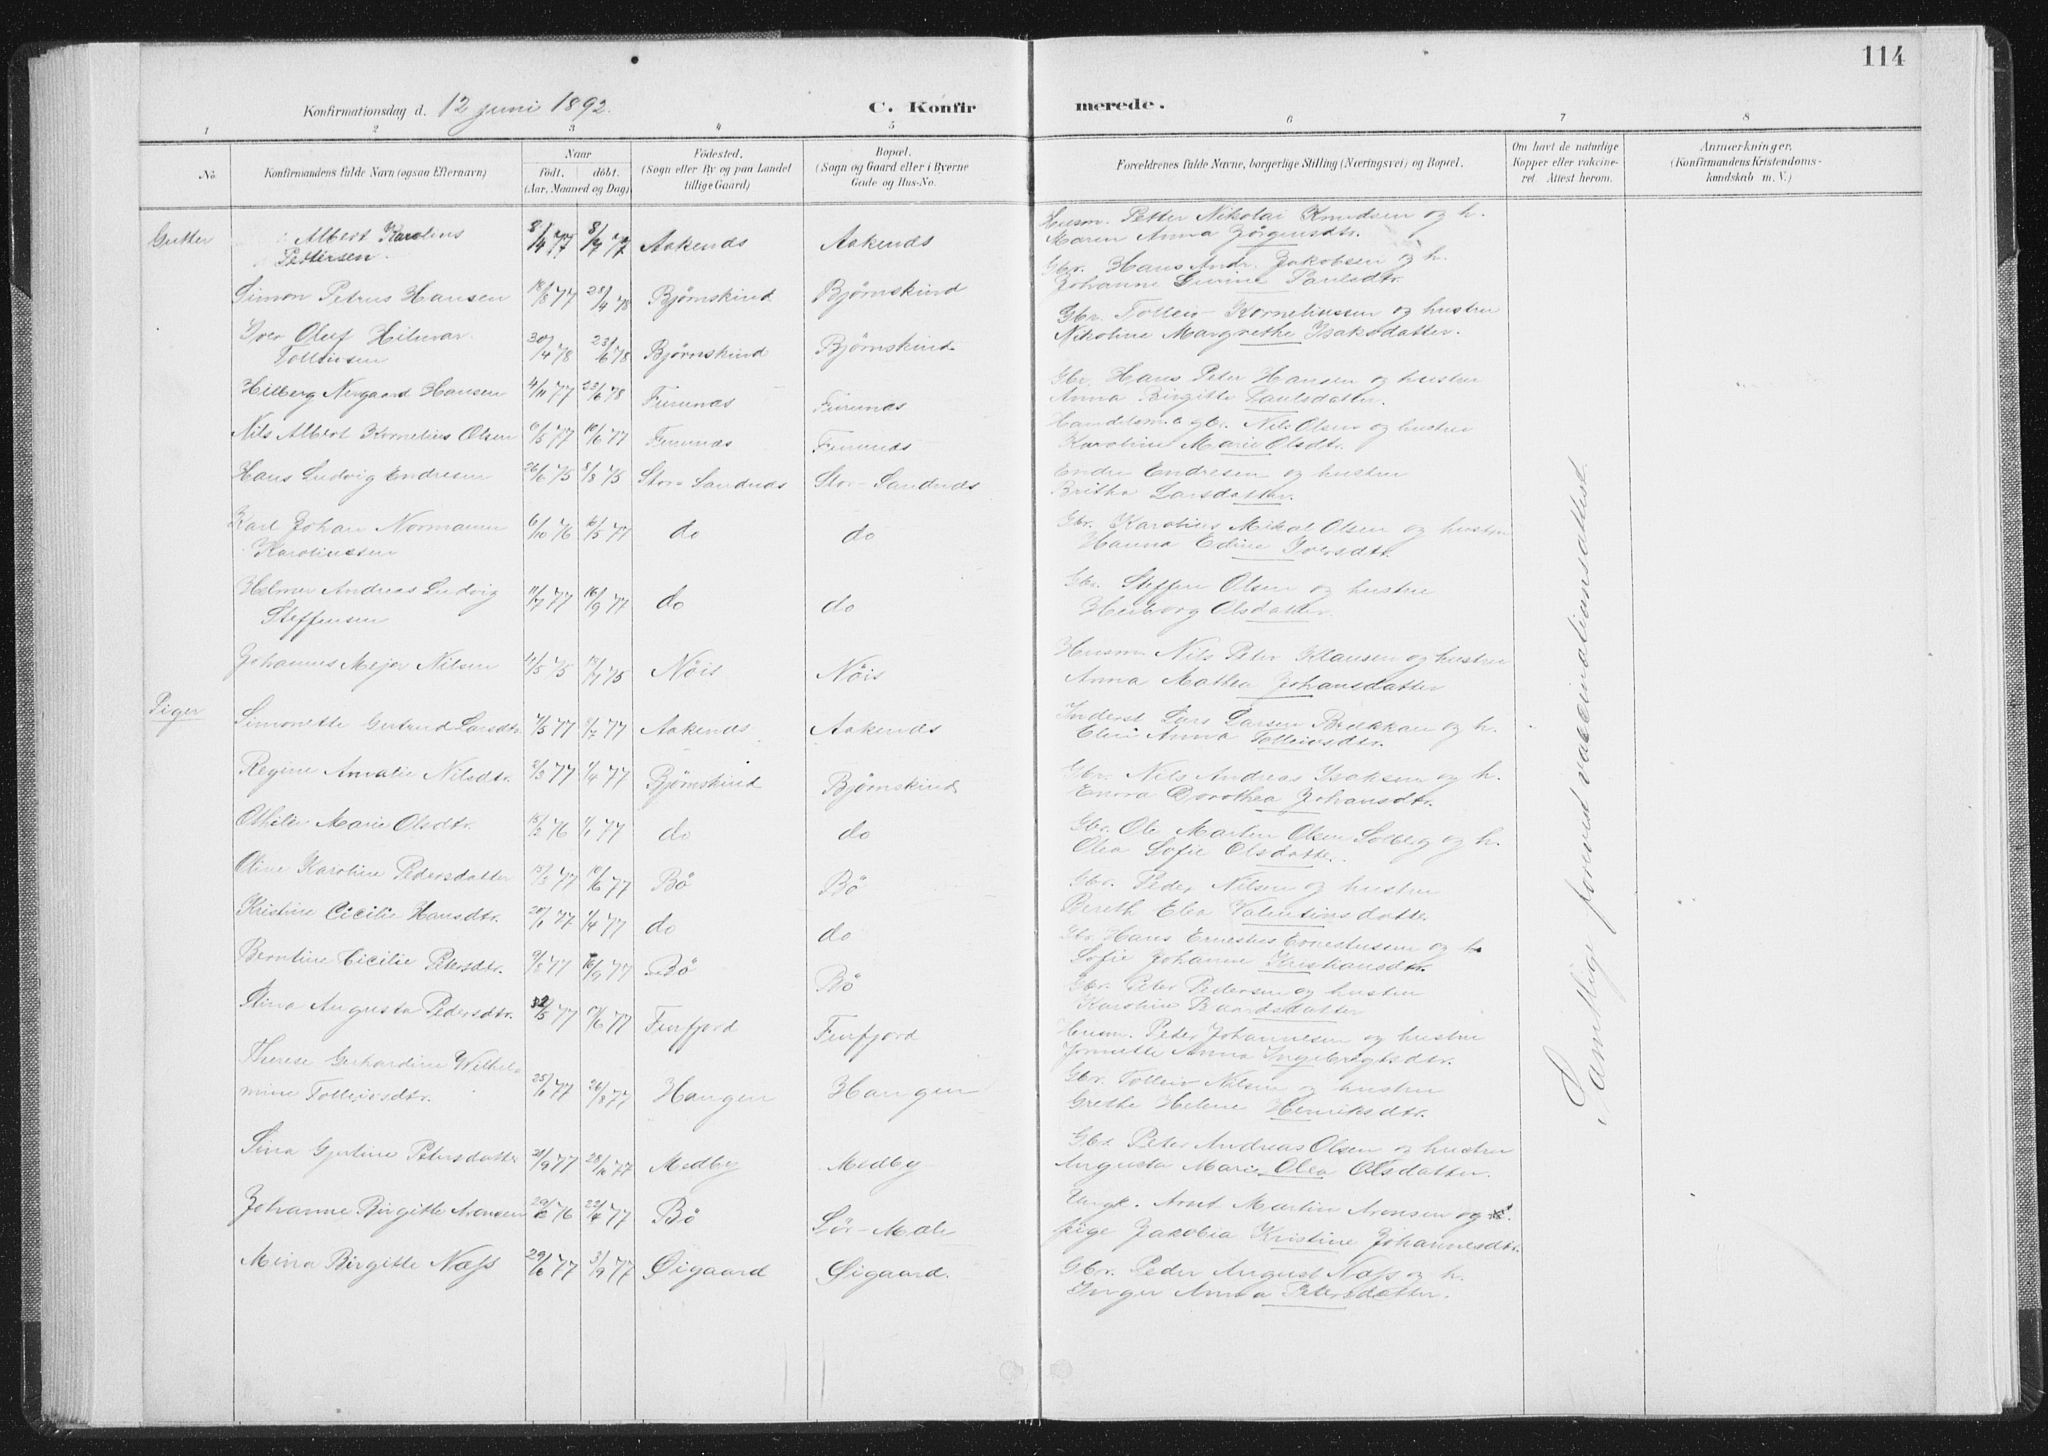 114
Konfirmationsdag d. 12 juni 1892. C. Konfirmerede.
1 2 3 4 5 6 7 8
No. Konfirmandens fulde Navn (ogsaa Efternavn) Naar født. døbt. (Aar, Maaned og Dag) Fødested. (Sogn eller By og paa Landet tillige Gaard) Bopæl. (Sogn og Gaard eller i Byerne Gade og Hus-No. Forældrenes fulde Navne, borgerlige Stilling (Næringsvei) og Bopæl. Om havt de naturlige Kopper eller vaccineret. Attest herom. Anmærkninger. (Konfirmandens Kristendomskundskab m. V.)
Gutter Albert Karolius Pettersen. 8/4 77 8/7 77 Aakenes Aakenes Husm. Petter Nikolai Knudsen og h.
Maren Anna Jörgensdtr.
Simon Petrus Hansen 18/8 77 23/4 78 Bjørnskind Bjørnskind Gbr. Hans Andr. Jakobsen og h.
Johanne Livine Paulsdtr.
Iver Oluf Hilmar Tolleivsen 30/4 78 23/6 78 Bjørnskind Bjørnskind Gbr. Tolleiv Korneliussen og hustru
Nikoline Margrethe Isaksdatter.
Hilberg Nergaard Hansen 4/11 77 23/6 78 Furunæs Furunæs Gbr. Hans Peter Hansen og hustru
Anna Birgitte Paulsdatter.
Nils Albert Kornelius Olsen 6/5 77 10/6 77 Furunæs Furunæs Handelsm. & gbr. Nils Olsen og hustru
Karoline Marie Olsdt.
Hans Ludvig Endresen 26/6 75 8/8 75 Stor-Sandnæs Stor-Sandnæs Endre Endresen og hustru
Britha Larsdatter.
Karl Johan Normann Karoliussen 6/10 76 16/5 77 do do Gbr. Karolius Mikal Olsen og hustru
Hanna Edine Iversdtr.
Helmer Andreas Ludvig Steffensen 11/7 77 16/9 77 do do Gbr. Steffen Olsen og hustru
Herborg Olsdatter.
Johannes Mejer Nilsen 4/5 75 18/7 75 Nöis Nöis Husm. Nils Peter Klausen og hustru
Anna Mathea Johansdatter
Piger Simonette Gertrud Larsdtr. 7/5 77 8/7 77 Aakenæs Aakenæs Inderst Lars Larsen Brækkan og h.
Elen Anna Tolleivsdtr.
Regine Amalie Nilsdtr. 2/3 77 1/4 77 Bjørnskind Bjørnskind Gbr. Nils Andreas Isaksen og h.
Emma Dorothea Johansdtr.
Othilie Marie Olsdtr. 18/2 76 1/1 77 do do Gbr. Ole Martin Olsen Solberg og h.
Olea Sofie Olsdatter.
Oline Karoline Pedersdatter 13/3 77 10/6 77 Bö Bö Gbr. Peder Nilsen og hustru
Bereth Elea Valentinsdatter.
Kristine Cicilie Hansdtr. 20/1 77 1/4 77 do do Gbr. Hans Ernestus Ernestusen og h
Sofie Johanne Kristiansdtr.
Berntine Cicilie Petersdtr. 9/8 77 16/9 77 Bö Bö Gbr. Peter Pedersen og hustru
Karoline Baardsdatter
Stina Augusta Pedersdtr. 32/5 77 10/6 77 Finfjord Finfjord Husm. Peter Johannesen og hustru
Jonnette Anna Ingebrigtsdtr.
Therese Gerhardine Wilhelmine Tolleivsdtr. 25/6 77 26/8 77 Haugen Haugen Gbr. Tolleiv Nilsen og hustru
Grethe Helene Henriksdtr.
Sina Gjertine Petersdatter 21/9 77 28/10 77 Medby Medby Gbr. Peter Andreas Olsen og hustru
Augusta Marie Olea Olsdatter.
Johanne Birgitte Aronsen 29/12 76 22/4 77 Bö Sör-Mæle Ungk. Arnt Martin Aronsen og
pige Jakobia Kristine Johannesdtr.
Mina Birgitte Næss 29/6 77 3/9 77 Øigaard Øigaard. Gbr. Peder August Næss og h.
Inger Anna Petersdatter.
Samtlige forevist vaccinationsattest.